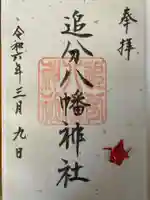 奉拝
追分八幡神社
令和六年三月九日